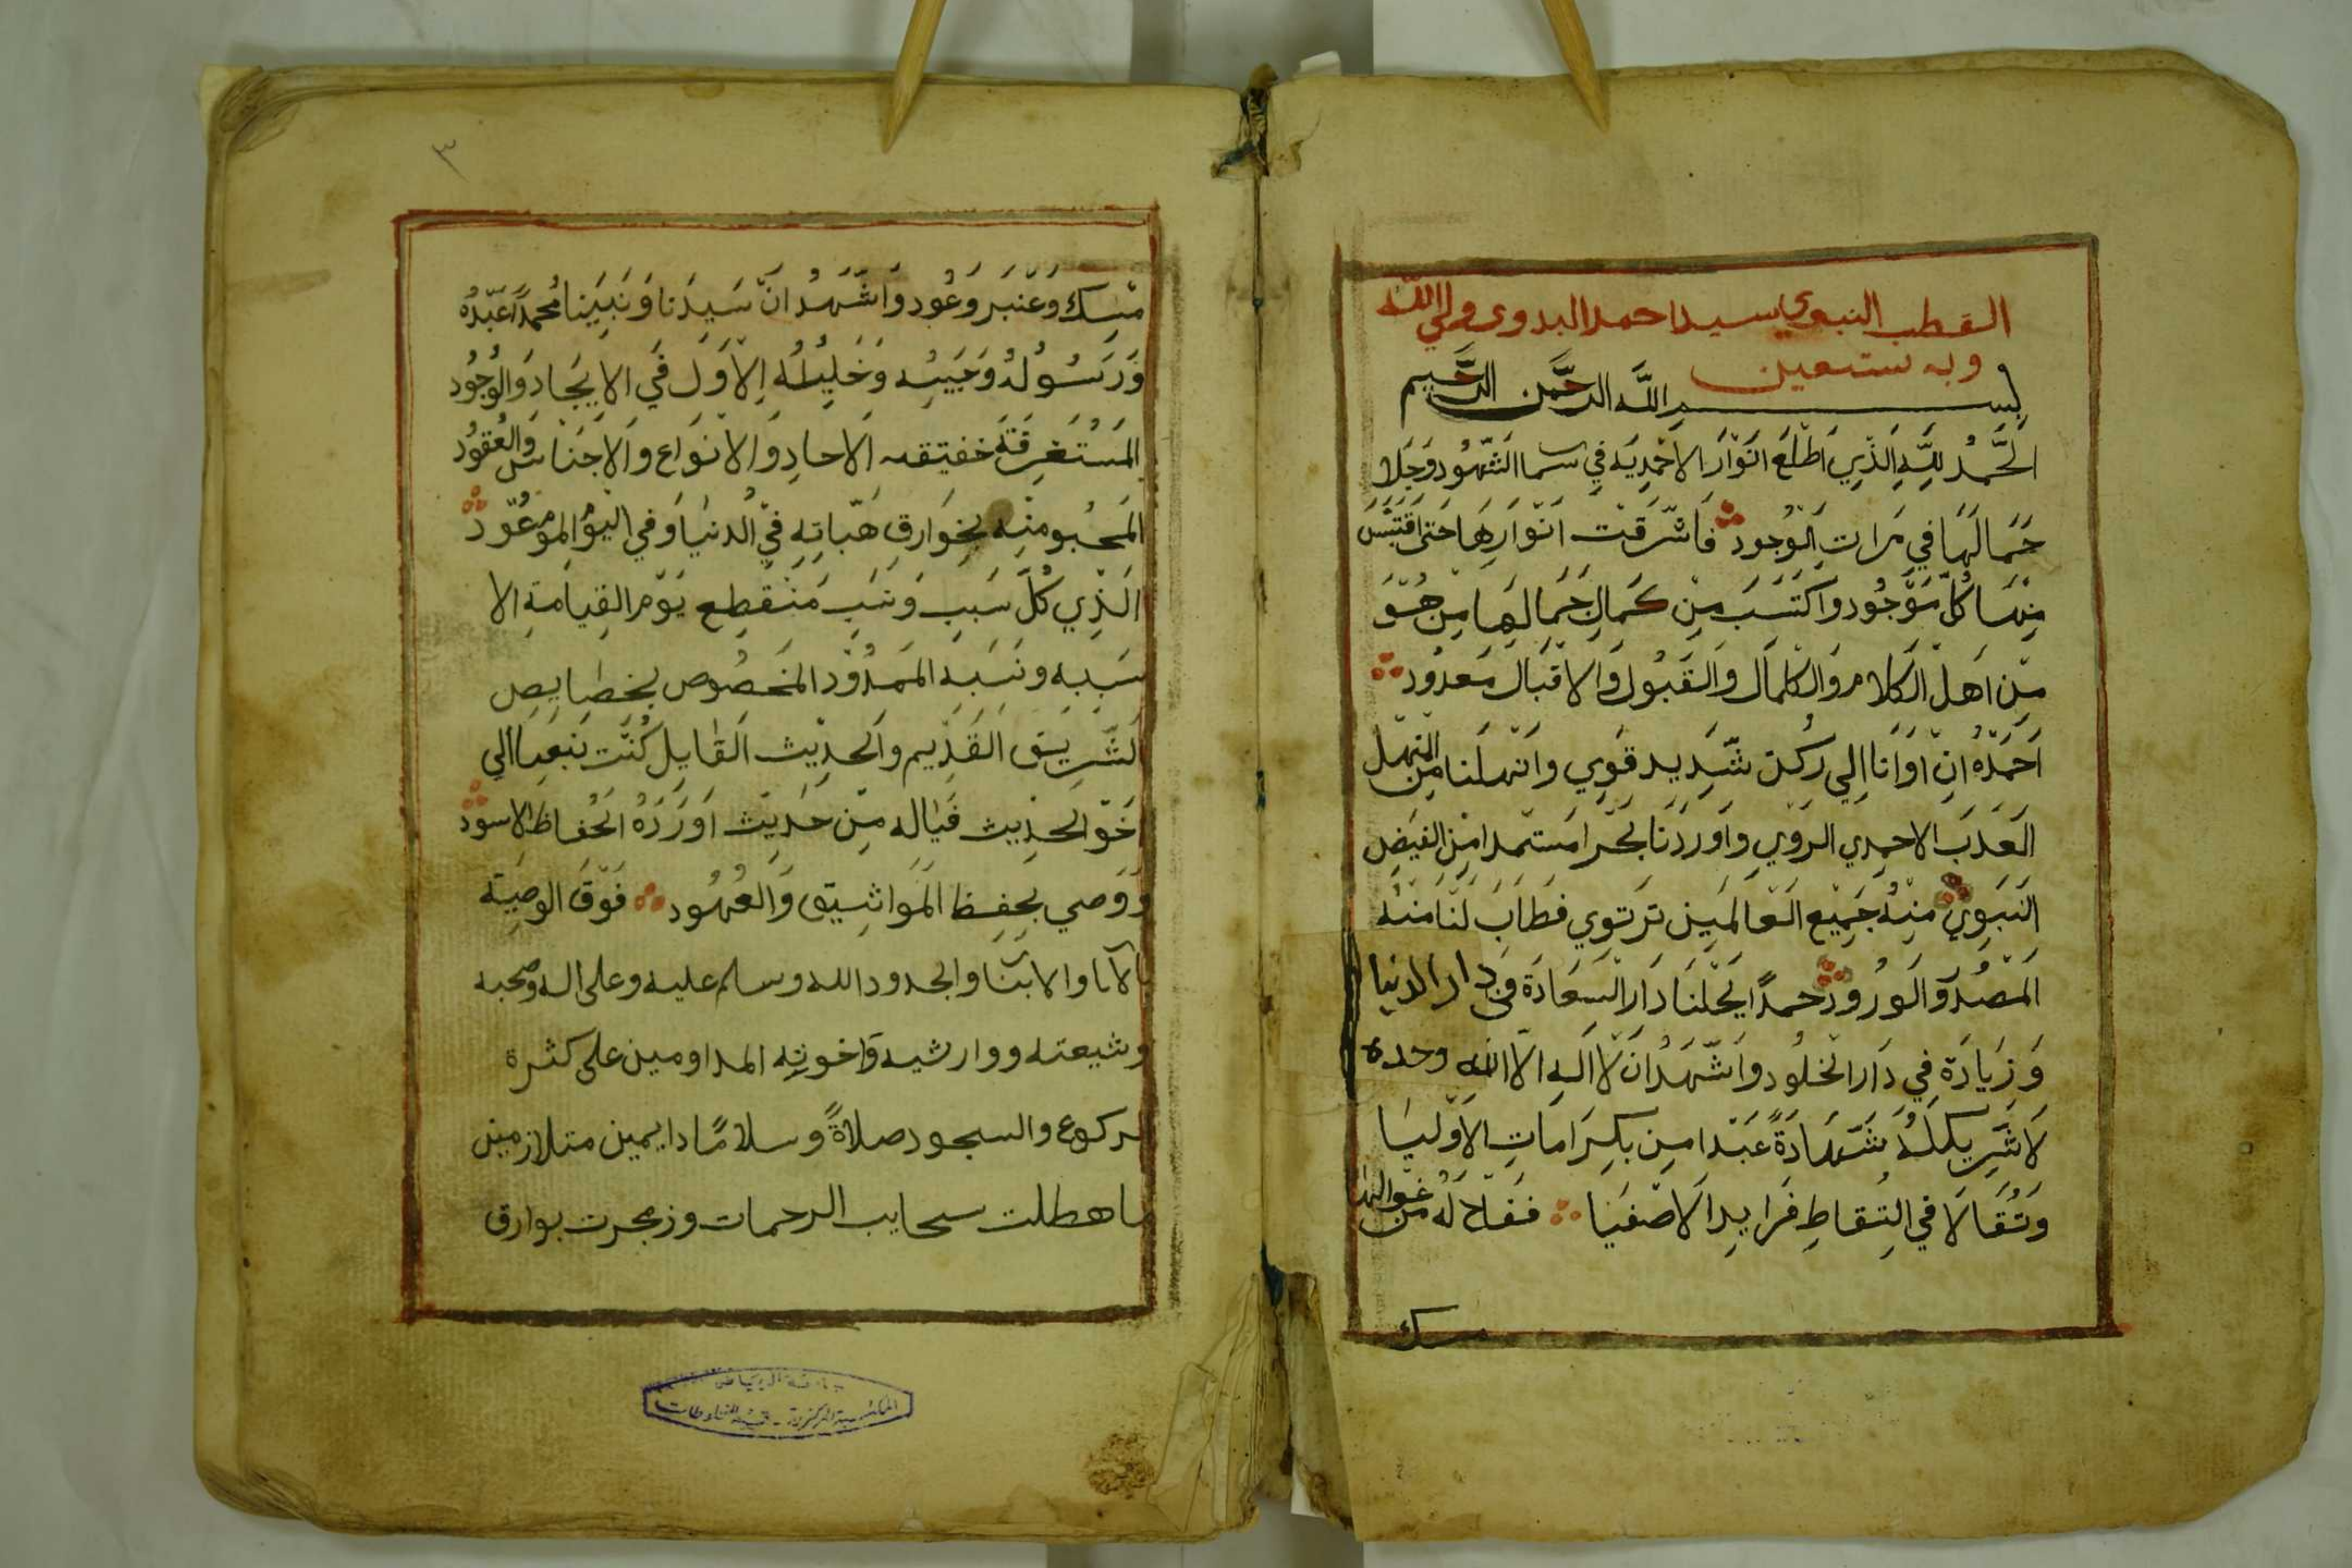 القطب النبوي سيد احمد البدوي ولي الله
وبه نستعين
بسم الله الرحمن الرحيم
الحمد لله الذي اطلع انوار الاحمدية في سما الشهود وجلا
جمالها في مرات الوجود فاشرقت انوارها حتى اقتبس
منها كل موجود واكتسب من كمال جمالها من هو
من اهل الكلام والكمال والقبول والاقبال معدود
احمده ان اوانا الي ركن شديد قوي وانهلنا من المنهل
العذب الاحمدي الروي واوردنا بحرا مستمدا من الفيض
النبوي منه جميع العالمين ترتوي فطاب لنا منه
المصدر والورود حمدًا يحلنا دار السعادة في دار الدنيا
وزيادة في دار الخلود واشهد ان لا اله الا الله وحده
لا شريك له شهادةً عبد امن بكرامات الاوليا
وتقالا في التقاط فرايد الاصفيا ففاح له من غوالها
مسك
٣
مسك وعنبر وعود واشهد ان سيدنا ونبينا محمدًا عبده
ورسوله وحبيبه وخليله الاول في الايجاد والوجود
المستغرقة حقيقته الاحاد والانواع والاجناس والعقود
المحبو منه بخوارق هباته في الدنيا وفي اليوم الموعود
الذي كل سبب ونسب منقطع يوم القيامة الا
سببه ونسبه الممدود المخصوص بخصايص
لتشريق القديم والحديث القايل كنت نبيا الي
اخو الحديث فياله من حديث اورده الحفاظ الاسود
ووصي بحفظ المواثيق والعهود فوق الوصية
بالابا والابنا والجدود الله وسلم عليه وعلى اله وصحبه
وشيعته ووارثيه واخوته المداومين على كثرة
لركوع والسجود صلاةً وسلامًا دايمين متلازمين
ما هطلت سحايب الرحمات وزمجرت بوارق
جامعة الرياض
المكتبة المركزية - قسم المخطوطات